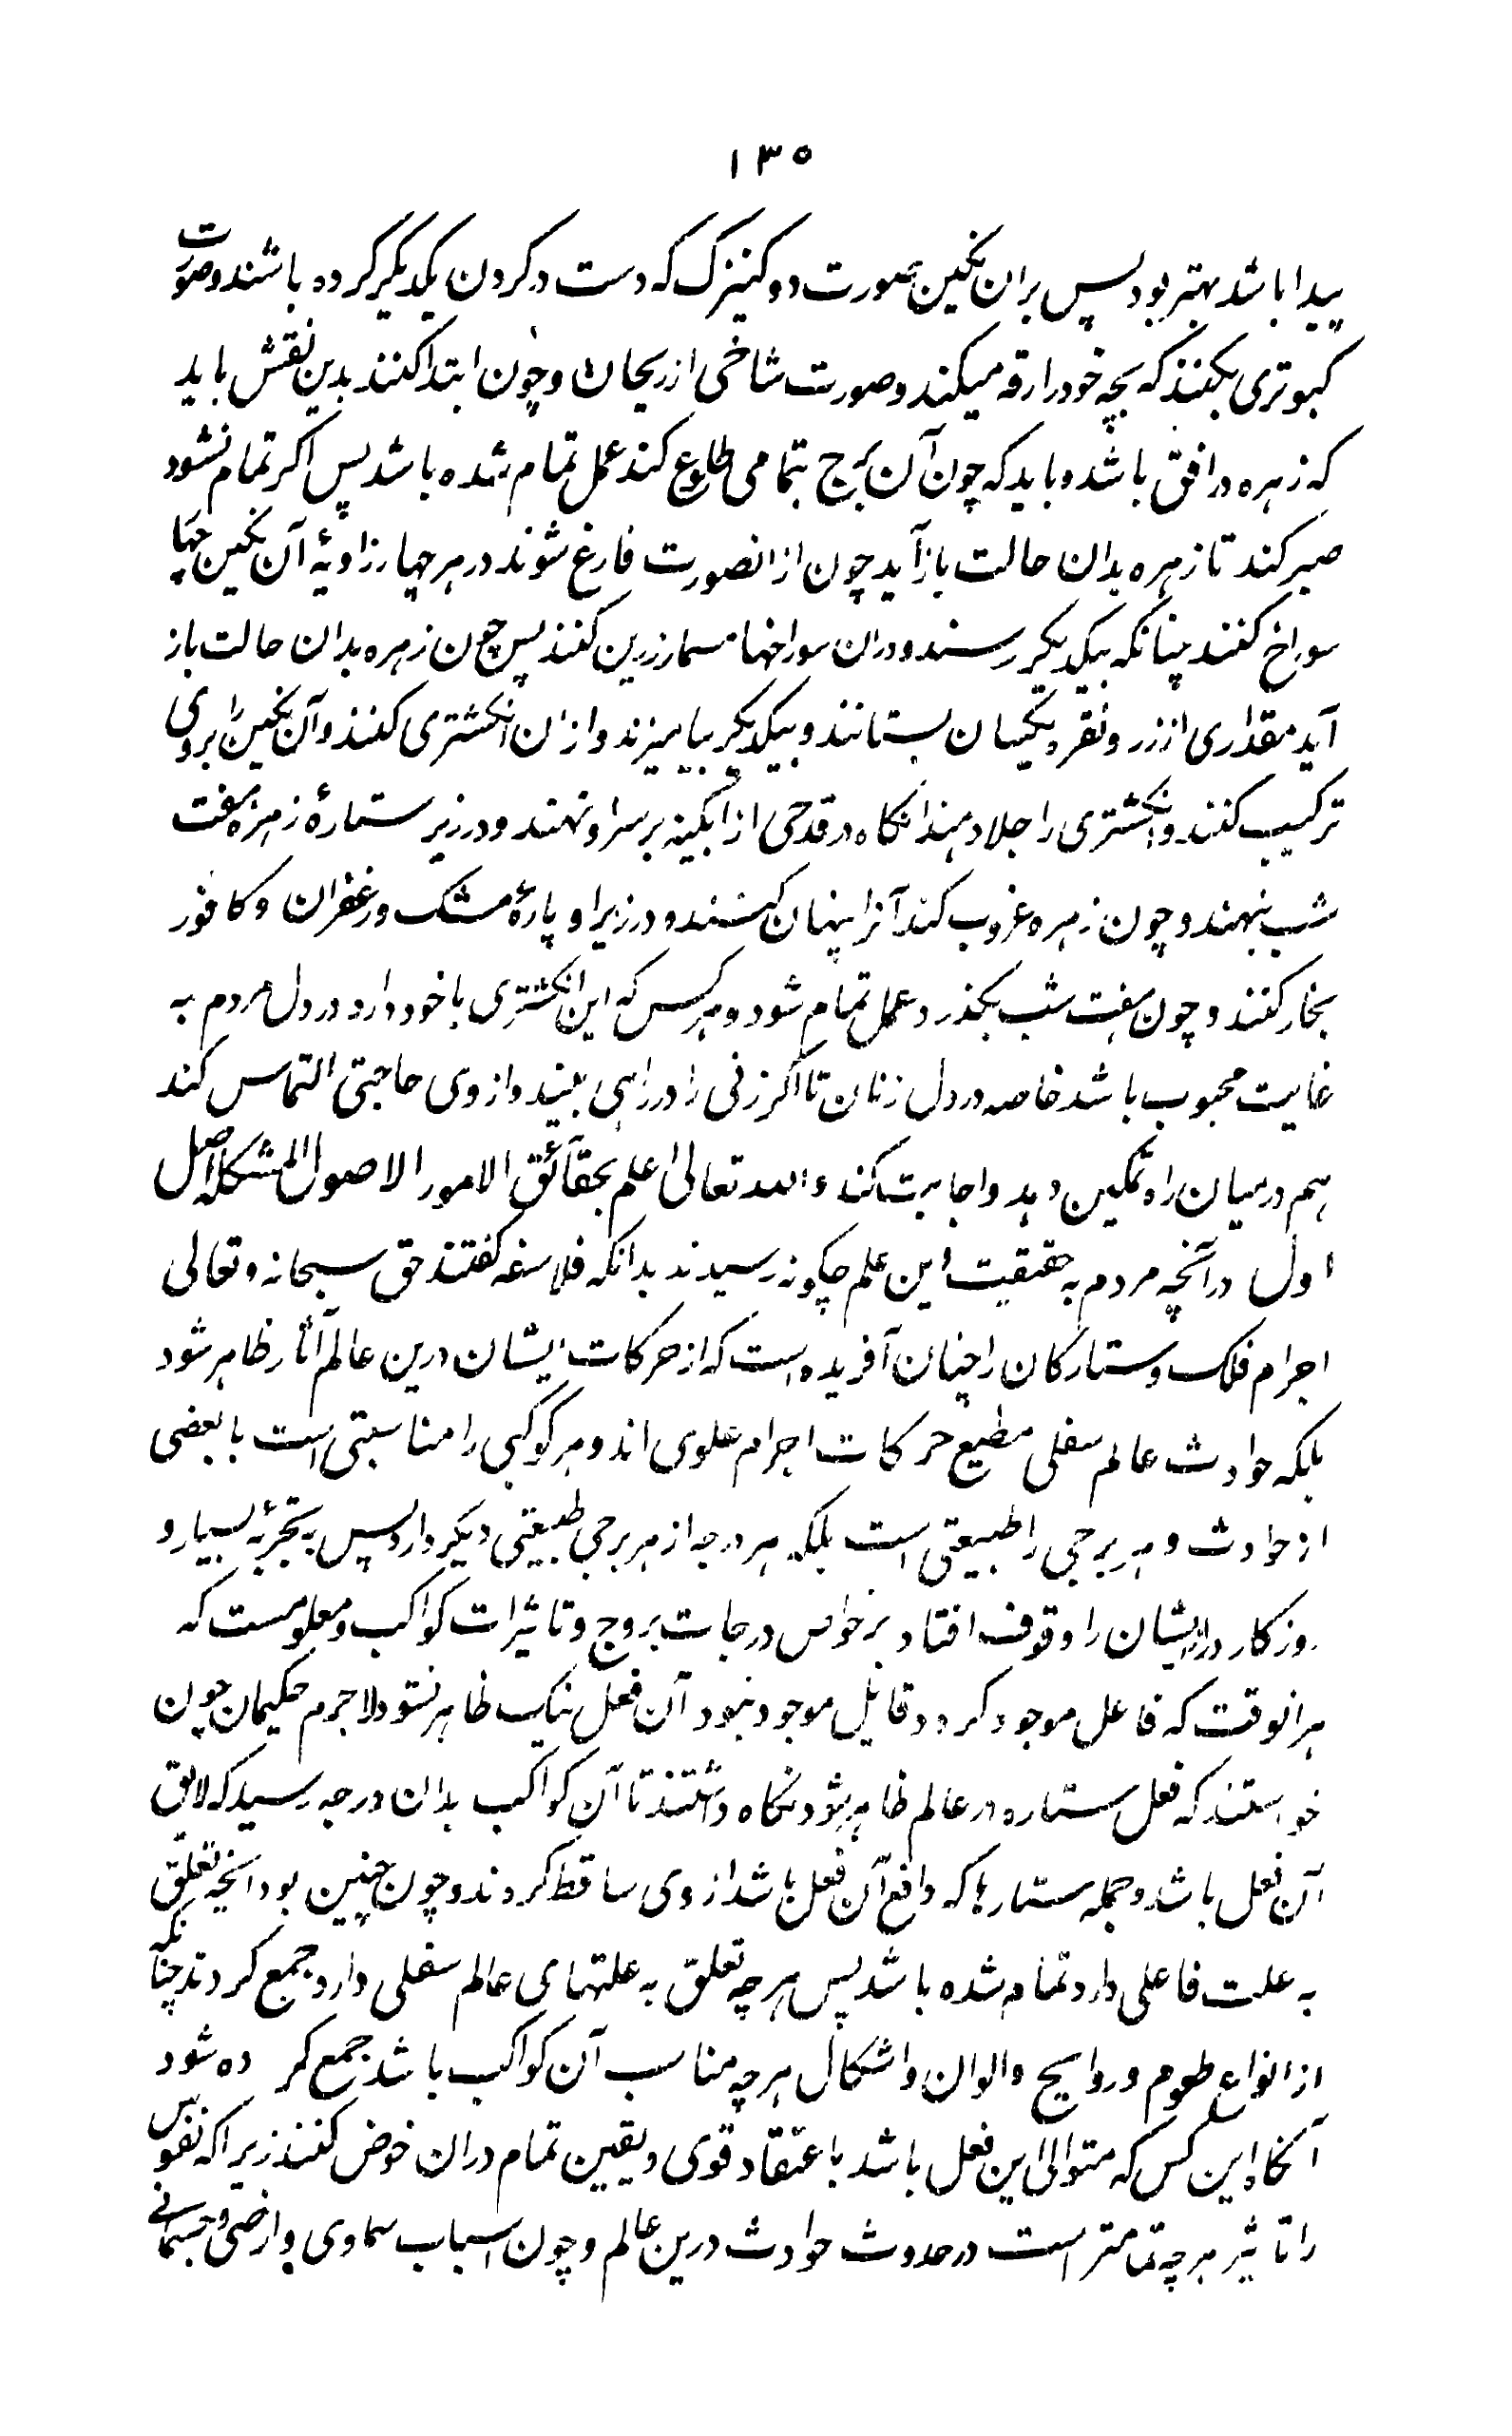 ۱۳۵
پیدا باشد بهتر بود پس بران نکین صورت دو کنیزک که دست در کردن یکدیکر کرده باشند و صورت
کبوتری بکنند که بچه خود را زقه میکند و صورت شاخی از ریحان و چون ابتدا کنند بدین نقش باید
که زهره در افق باشد و باید که چون آن برج بتمامی طلوع کند عمل تمام شده باشد پس اکر تمام نشود
صبر کند تا زهره بدان حالت باز آید چون از انصورت فارغ شوند در هر چهار زاویهٔ آن نکین چهار
سوراخ کنند چنانکه بیکدیکر رسند و دران سوراخها مسمار زرین کنند پس چون زهره بدان حالت باز
آید مقداری از زر و نقره یکسان بستانند و بیکدیکر بیامیزند و ازان انکشتری کنند و آن نکین را بروی
ترکیب کنند و انکشتری را جلا دهند انکاه در قدحی از ابکینه بر سر او نهند و در زیر ستارهٔ زهره هفت
شب بنهند و چون زهره غروب کند آنرا پنهان کنند و در زیر او پارهٔ مشک و زعفران و کافور
بخار کنند و چون هفت شب بکذرد عمل تمام شود و هر کس که این انکشتری با خود دارد در دل مردم به
غایت محبوب باشد خاصه در دل زنان تا اکر زنی را در راهی بیند و از وی حاجتی التماس کند
هم در میان راه تمکین دهد و اجابت کند والله تعالی اعلم بحقآئق الامور الاصول المشکله اصل
اول درآنچه مردم به حقیقت این علم چکونه رسیدند بدانکه فلاسفه کفتند حق سبحانه و تعالی
اجرام فلک و ستارکان را چنان آفریده است که از حرکات ایشان درین عالم آثار ظاهر شود
بلکه حوادث عالم سفلی مطیع حرکات اجرام علوی اند و هر کوکبی را مناسبتی است با بعضی
از حوادث و هر برجی را طبیعتی است بلکه هر درجه از هر برجی طبیعتی دیکر دارد پس به تجربهٔ بسیار و
روزکار دراز ایشان را وقوف افتاد بر خواص درجات بروج و تاثیرات کواکب و معلومست که
هرانوقت که فاعل موجود کردد و قابل موجود نبود آن فعل نیک ظاهر نشود لاجرم حکیمان چون
خواستند که فعل ستاره در عالم ظاهر شود نکاه داشتند تا آن کواکب بدان درجه رسید که لایق
آن فعل باشد و جمله ستارها که دافع آن فعل باشد از وی ساقط کردند و چون چنین بود انچه تعلق
به علت فاعلی دارد تمام شده باشد پس هر چه تعلق به علتهای عالم سفلی دارد جمع کردند چنانکه
از انواع طعوم و روایح و الوان و اشکال هر چه مناسب آن کواکب باشد جمع کرده شود
آنکاه این کس که متوالی این فعل باشد باعتقاد قوی و یقین تمام دران خوض کنند زیراکه نفوس
را تاثیر هر چه تمامتر است در حدوث حوادث درین عالم و چون اسباب سماوی و ارضی و جسمانی